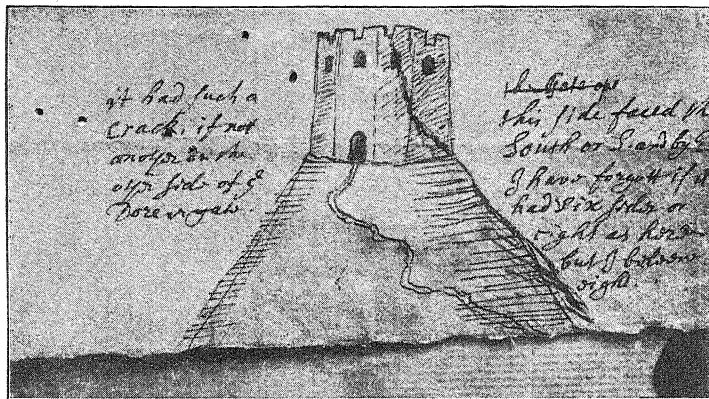 it had such a
crack, if not
anoyr on the
oyr side of ye
Dore or gate.
this side faced
South or S. and by
I have forgott if it
had six sides or
eight as here
but I beleeve
eight.